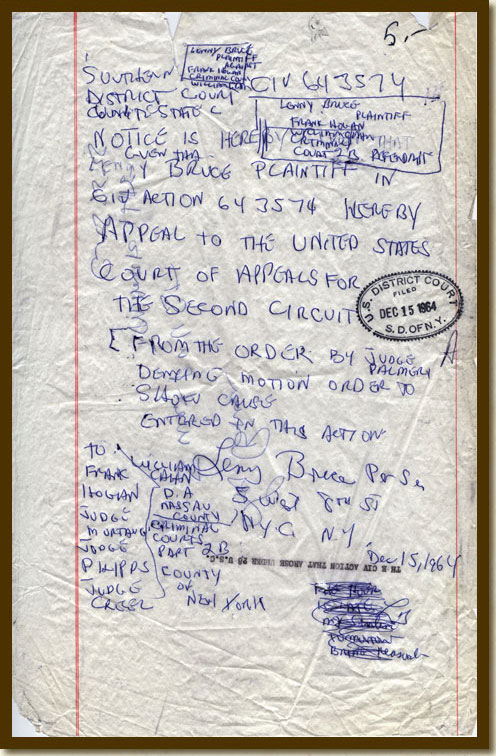 5.-
LENNY BRUCE
PLAINTIFF
AGAINST
FRANK HOGAN
CRIMINAL COURT
SOUTHERN
DISTRICT COURT
CIV 64 3574
LENNY BRUCE
PLAINTIFF
FRANK HOGAN
WILLIAM CAHN
CRIMINAL
COURT 2B DEFENDANT
NOTICE IS HEREBY
GIVEN THAT
LENNY BRUCE PLAINTIFF IN
CIV ACTION 64 3574 HEREBY
APPEAL TO THE UNITED STATES
COURT OF APPEALS FOR
THE SECOND CIRCUIT
U.S. DISTRICT COURT
FILED
DEC 15 1964
S.D. OF N.Y.
[ FROM THE ORDER BY JUDGE
PALMERI
DENYING MOTION ORDER TO
SHOW CAUSE
ENTERED IN THIS ACTION
Lenny Bruce Per Se
8 West 8th St
NYC N.Y.
Dec 15, 1964
TO
FRANK
HOGAN
JUDGE
MURTAGH
JUDGE
PHIPPS
JUDGE
CREEL
WILLIAM
CAHN
D.A
NASSAU
COUNTY
CRIMINAL
COURTS
PART 2B
COUNTY
OF
NEW YORK
TH E CIV ACTION THAT AROSE UNDER 28 U.S.C.